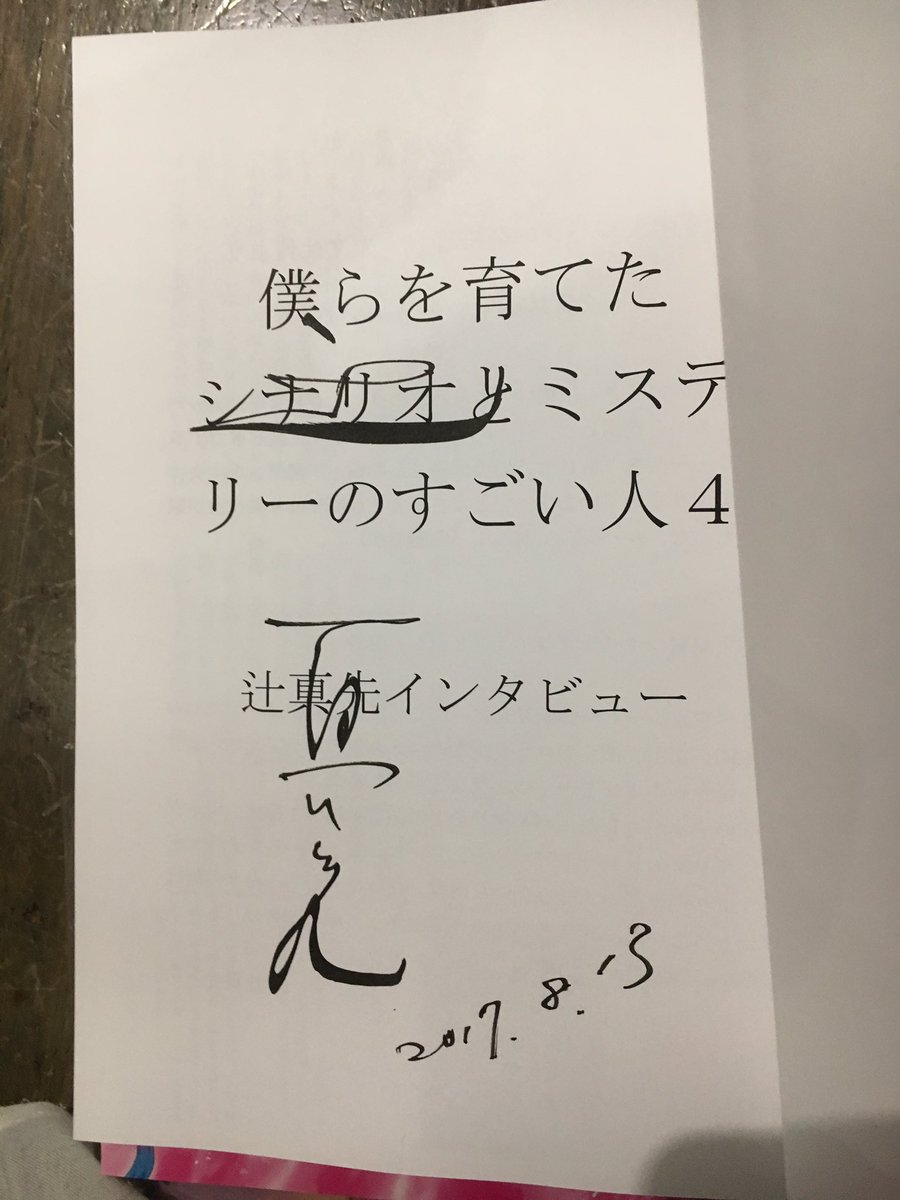 僕らを育てた
シナリオとミステ
リーのすごい人4
辻真先インタビュー
2017.8.13